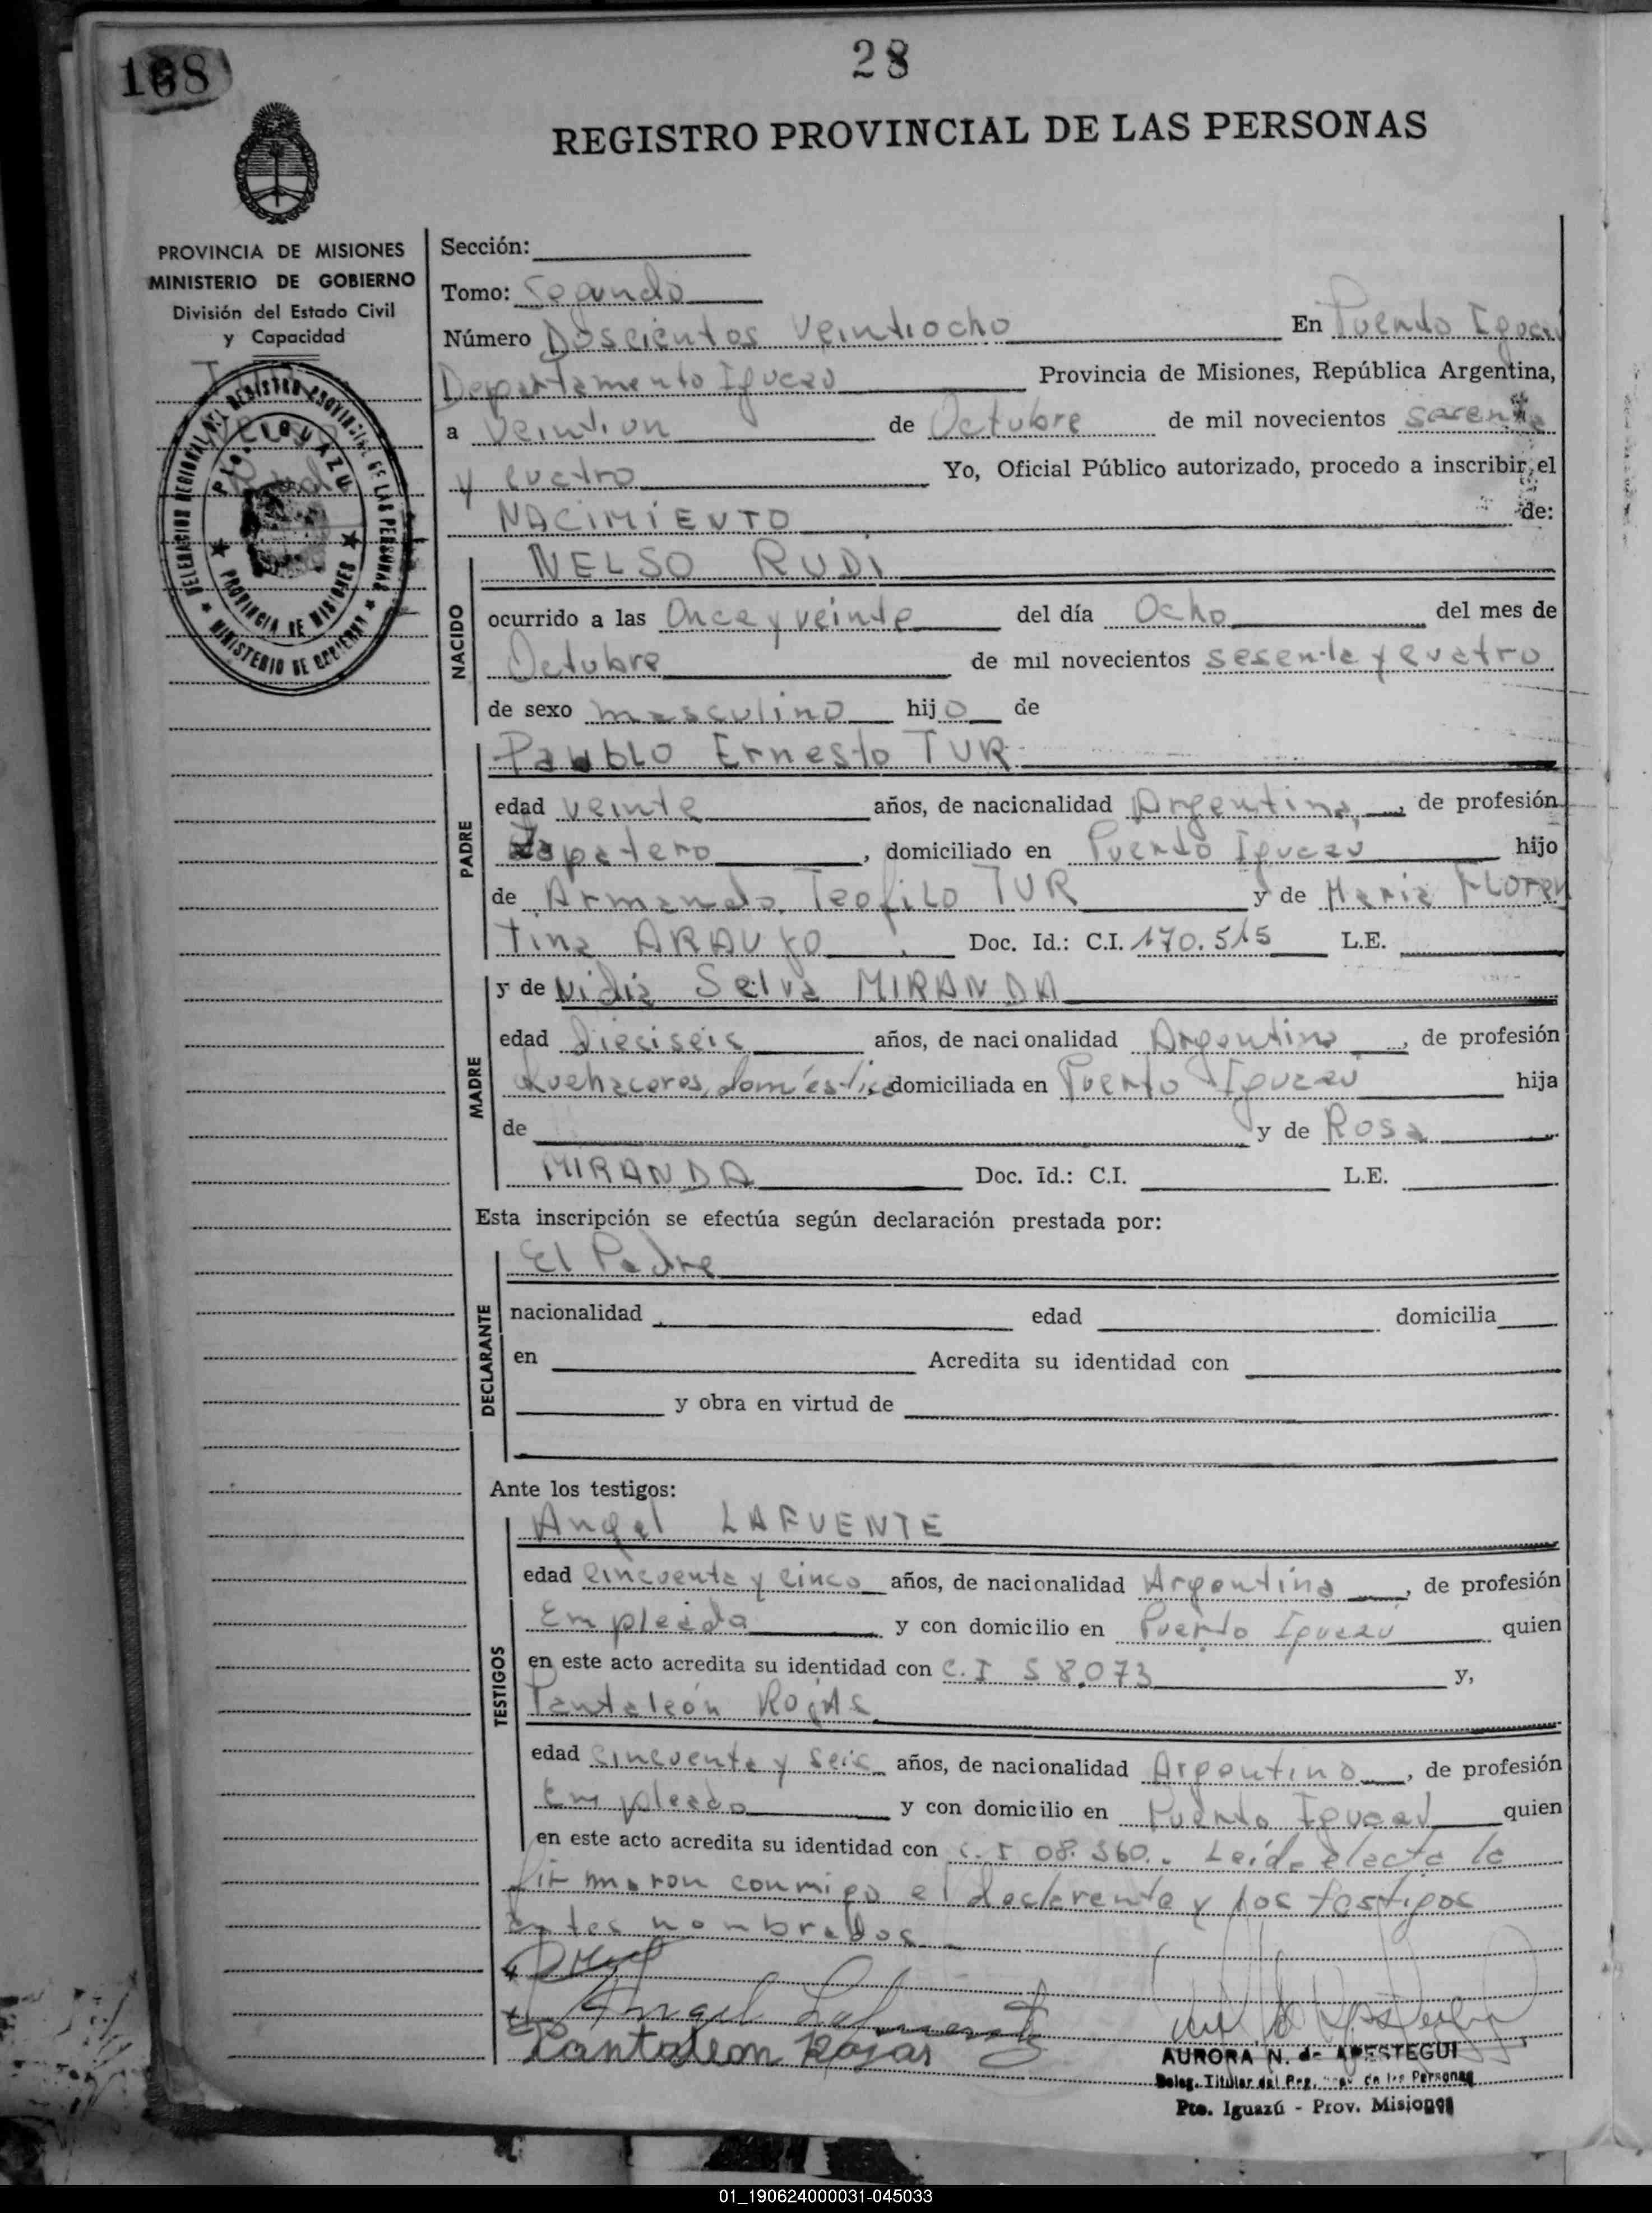 168
28
REGISTRO PROVINCIAL DE LAS PERSONAS
PROVINCIA DE MISIONES
MINISTERIO DE GOBIERNO
División del Estado Civil
y Capacidad
DELEGACION REGIONAL DEL REGISTRO PROVINCIAL DE LAS PERSONAS
Pto. IGUAZU
PROVINCIA DE MISIONES
MINISTERIO DE GOBIERNO
Sección:
Tomo: Segundo
Número Doscientos Veintiocho En Puerto Iguazú
Departamento Iguazú Provincia de Misiones, República Argentina,
a Veintiun de Octubre de mil novecientos sesenta
y cuatro Yo, Oficial Público autorizado, procedo a inscribir el
NACIMIENTO de:
NACIDO
NELSO RUDI
ocurrido a las Once y veinte del día Ocho del mes de
Octubre de mil novecientos sesenta y cuatro
de sexo masculino hijo de
PADRE
Paublo Ernesto TUR
edad veinte años, de nacionalidad Argentina, de profesión
Zapatero, domiciliado en Puerto Iguazú hijo
de Armando Teofilo TUR y de Maria Floren
tina ARAUJO Doc. Id.: C.I. 170.515 L.E.
MADRE
y de Nidia Selva MIRANDA
edad Dieciseis años, de nacionalidad Argentina, de profesión
Quehaceres domésticos domiciliada en Puerto Iguazú hija
de y de Rosa
MIRANDA Doc. Id.: C.I. L.E.
Esta inscripción se efectúa según declaración prestada por:
DECLARANTE
El Padre
nacionalidad edad domicilia
en Acredita su identidad con
y obra en virtud de
Ante los testigos:
TESTIGOS
Angel LAFUENTE
edad cincuenta y cinco años, de nacionalidad Argentina, de profesión
Empleado y con domicilio en Puerto Iguazú quien
en este acto acredita su identidad con C.I 58.073 y,
Pantaleón Rojas
edad cincuenta y seis años, de nacionalidad Argentino, de profesión
Empleado y con domicilio en Puerto Iguazú quien
en este acto acredita su identidad con C.I 08.360.. Leída el acta la
firmaron conmigo el declarente y los testigos
antes nombrados
Angel Lafuente
Pantaleon Rojas
AURORA N. de APESTEGUI
Deleg. Titular del Reg. Prov. de las Personas
Pto. Iguazú - Prov. Misiones
01_190624000031-045033